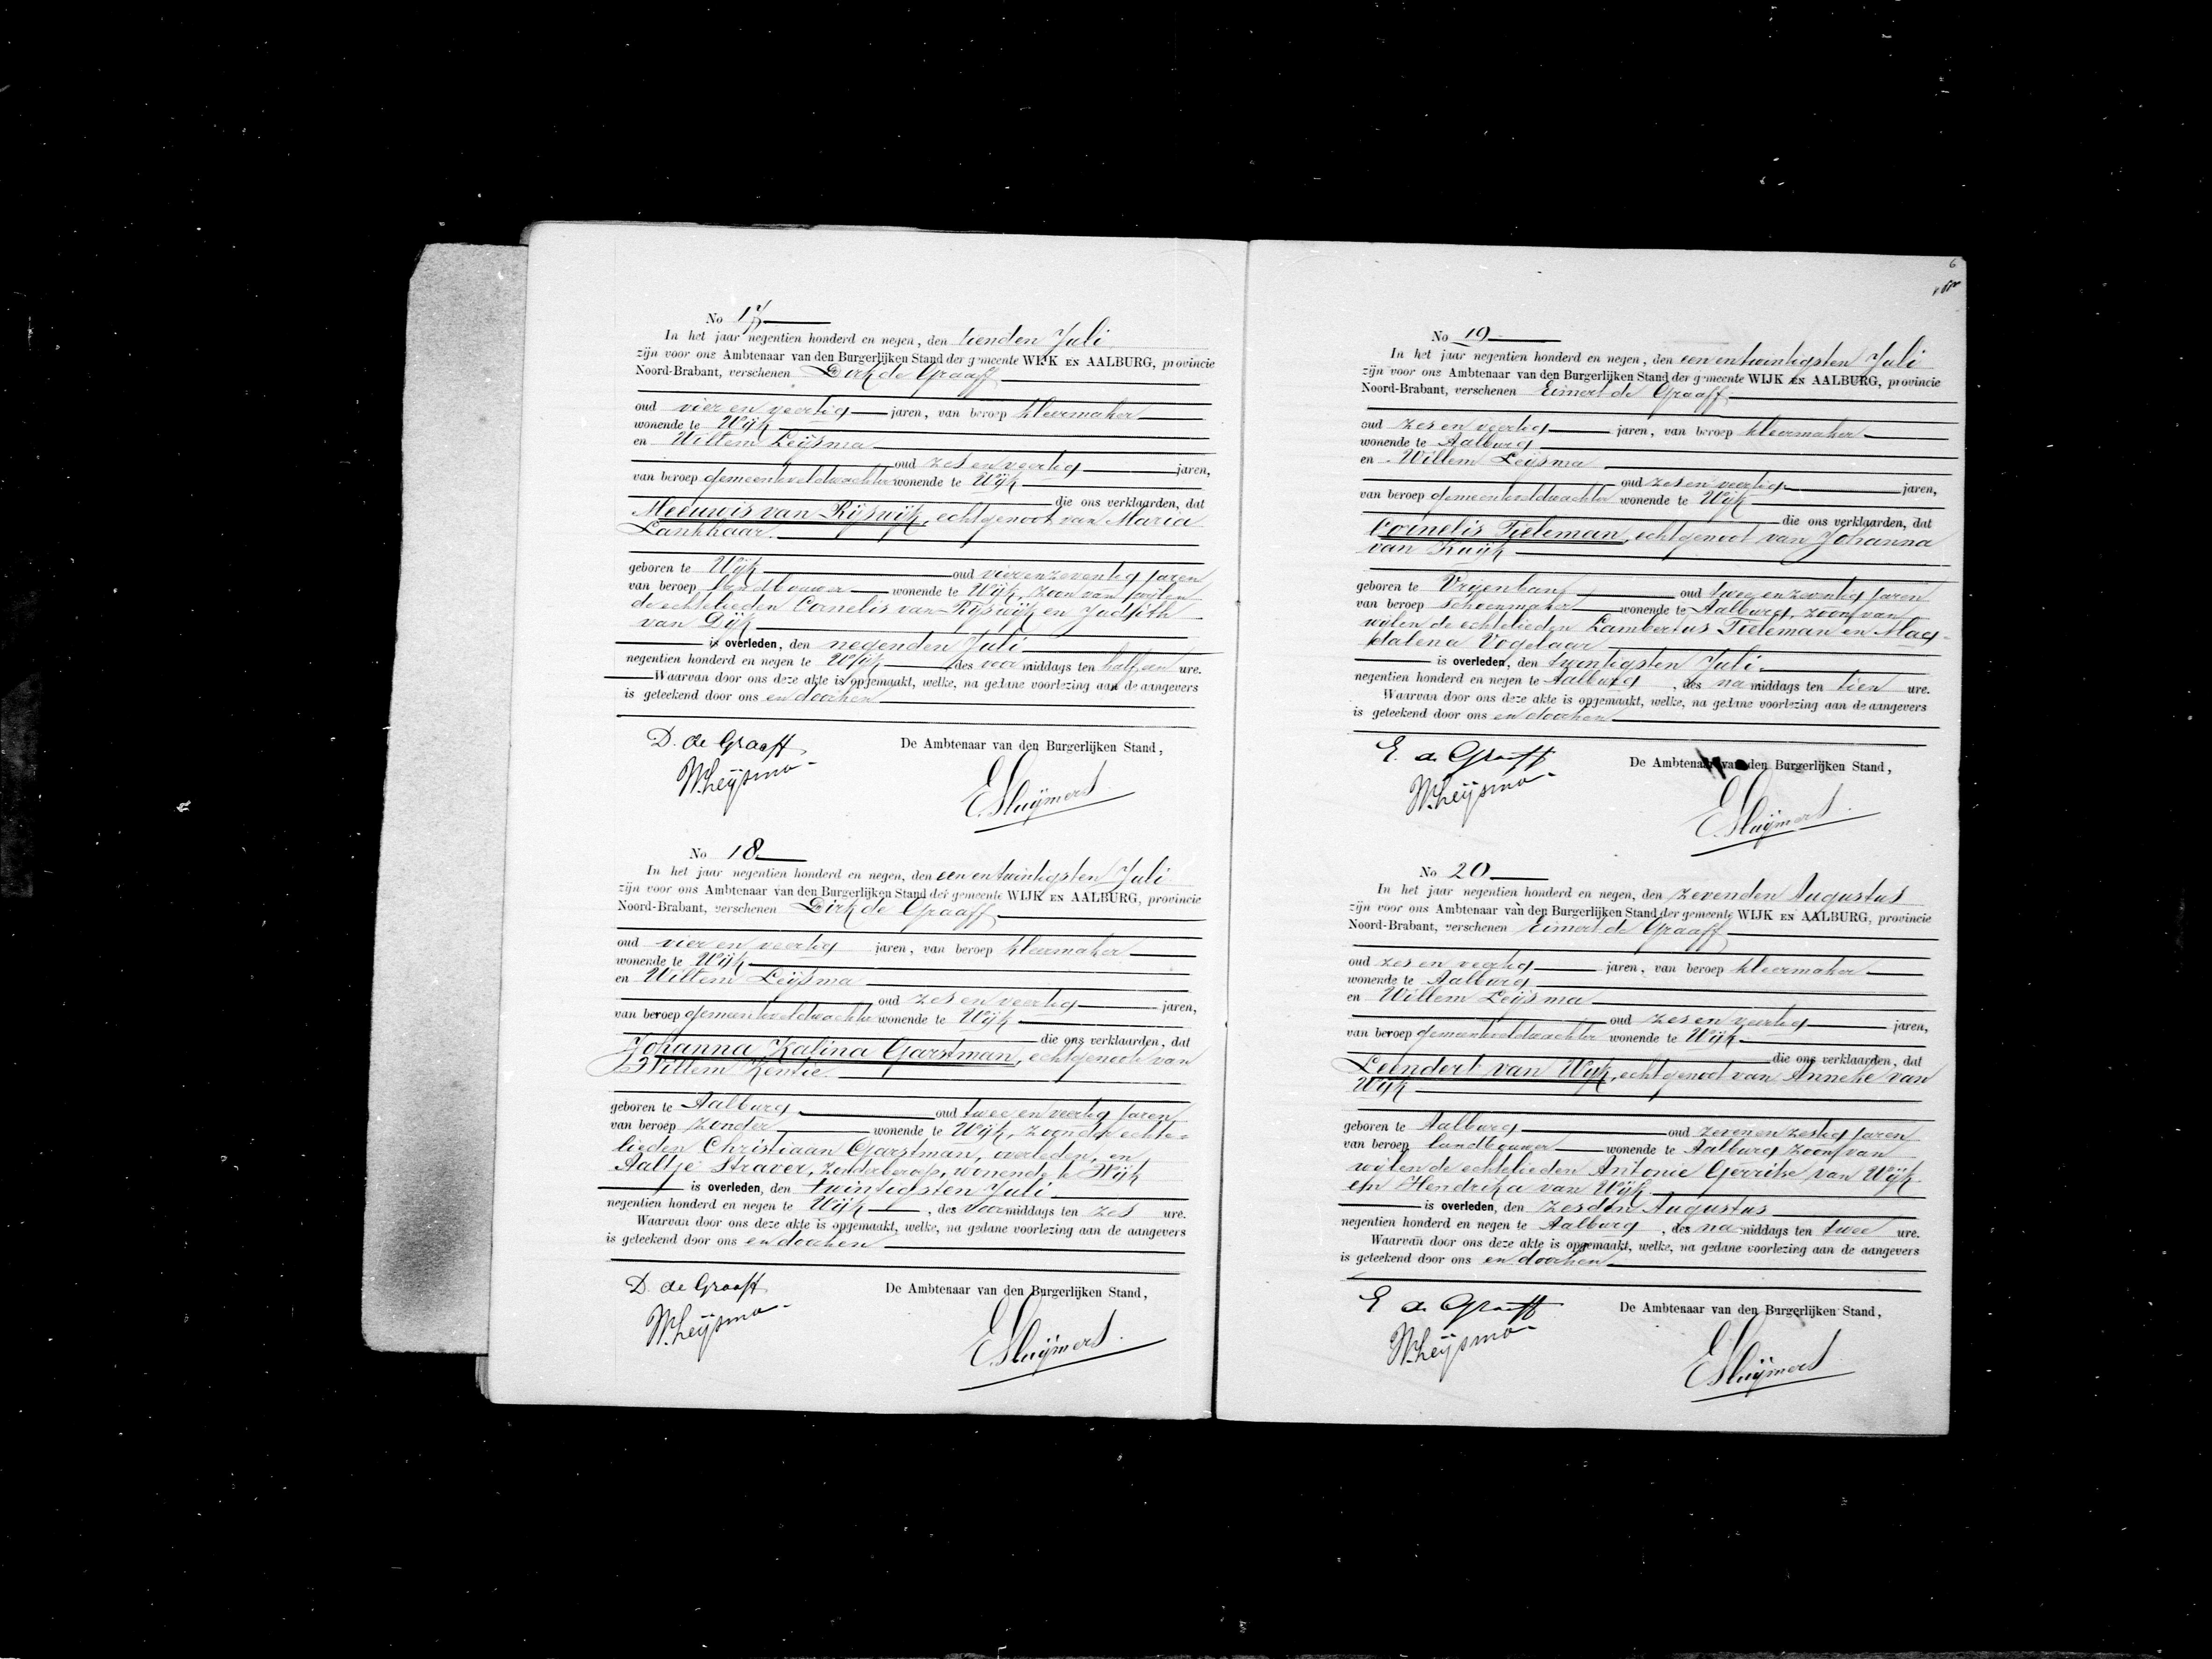 No 17
In het jaar negentien honderd en negen, den tienden Juli
zijn voor ons Ambtenaar van den Burgerlijken Stand der gemeente WIJK EN AALBURG, provincie
Noord-Brabant, verschenen Dirk de Graaff
oud vier en veertig jaren, van beroep kleermaker
wonende te Wijk
en Willem Leijsma
oud zes en veertig jaren,
van beroep gemeenteveldwachter wonende te Wijk
die ons verklaarden, dat
Meeuwis van Rijswijk, echtgenoot van Maria
Lankhaar.
geboren te Wijk oud vier en zeventig jaren
van beroep landbouwer wonende te Wijk, zoon van wijlen
de echtelieden Cornelis van Rijswijk en Judith
van Dijk
is overleden, den negenden Juli
negentien honderd en negen te Wijk des voormiddags ten half een ure.
Waarvan door ons deze akte is opgemaakt, welke, na gedane voorlezing aan de aangevers
is geteekend door ons en door hen
D. de Graaff
De Ambtenaar van den Burgerlijken Stand,
W. Leijsma
E. Sluijmers
No 18
In het jaar negentien honderd en negen, den een en twintigsten Juli
zijn voor ons Ambtenaar van den Burgerlijken Stand der gemeente WIJK EN AALBURG, provincie
Noord-Brabant, verschenen Dirk de Graaff
oud vier en veertig jaren, van beroep kleermaker
wonende te Wijk
en Willem Leijsma
oud zes en veertig jaren,
van beroep gemeenteveldwachter wonende te Wijk
die ons verklaarden, dat
Johanna Kalina Garstman, echtgenoote van
Willem Kentie.
geboren te Aalburg oud twee en veertig jaren
van beroep zonder wonende te Wijk, zoon der echte-
lieden Christiaan Garstman, overleden, en
Aaltje Straver, zonder beroep, wonende te Wijk
is overleden, den twintigsten Juli
negentien honderd en negen te Wijk, des voormiddags ten zes ure.
Waarvan door ons deze akte is opgemaakt, welke, na gedane voorlezing aan de aangevers
is geteekend door ons en door hen
D. de Graaff
De Ambtenaar van den Burgerlijken Stand,
W. Leijsma
E. Sluijmers
6
No 19
In het jaar negentien honderd en negen, den een en twintigsten Juli
zijn voor ons Ambtenaar van den Burgerlijken Stand der gemeente WIJK EN AALBURG, provincie
Noord-Brabant, verschenen Eimert de Graaff
oud zes en veertig jaren, van beroep kleermaker
wonende te Aalburg
en Willem Leijsma
oud zes en veertig jaren,
van beroep gemeenteveldwachter wonende te Wijk
die ons verklaarden, dat
Cornelis Tieleman, echtgenoot van Johanna
van Kuijk
geboren te Vrijenban oud twee en zeventig jaren
van beroep schoenmaker wonende te Aalburg, zoon van
wijlen de echtelieden Lambertus Tieleman en Mag-
dalena Vogelaar
is overleden, den twintigsten Juli
negentien honderd en negen te Aalburg, des namiddags ten tien ure.
Waarvan door ons deze akte is opgemaakt, welke, na gedane voorlezing aan de aangevers
is geteekend door ons en door hen
E. de Graaff
De Ambtenaar van den Burgerlijken Stand,
W. Leijsma
E. Sluijmers
No 20
In het jaar negentien honderd en negen, den zevenden Augustus
zijn voor ons Ambtenaar van den Burgerlijken Stand der gemeente WIJK EN AALBURG, provincie
Noord-Brabant, verschenen Eimert de Graaff
oud zes en veertig jaren, van beroep kleermaker
wonende te Aalburg
en Willem Leijsma
oud zes en veertig jaren,
van beroep gemeenteveldwachter wonende te Wijk
die ons verklaarden, dat
Leendert van Wijk, echtgenoot van Anneke van
Wijk
geboren te Aalburg oud zeven en zestig jaren
van beroep landbouwer wonende te Aalburg zoon van
wijlen de echtelieden Antonie Gerritse van Wijk
en Hendrika van Wijk
is overleden, den zesden Augustus
negentien honderd en negen te Aalburg, des namiddags ten twee ure.
Waarvan door ons deze akte is opgemaakt, welke, na gedane voorlezing aan de aangevers
is geteekend door ons en door hen
E de Graaff
De Ambtenaar van den Burgerlijken Stand,
W. Leijsma
E Sluijmers